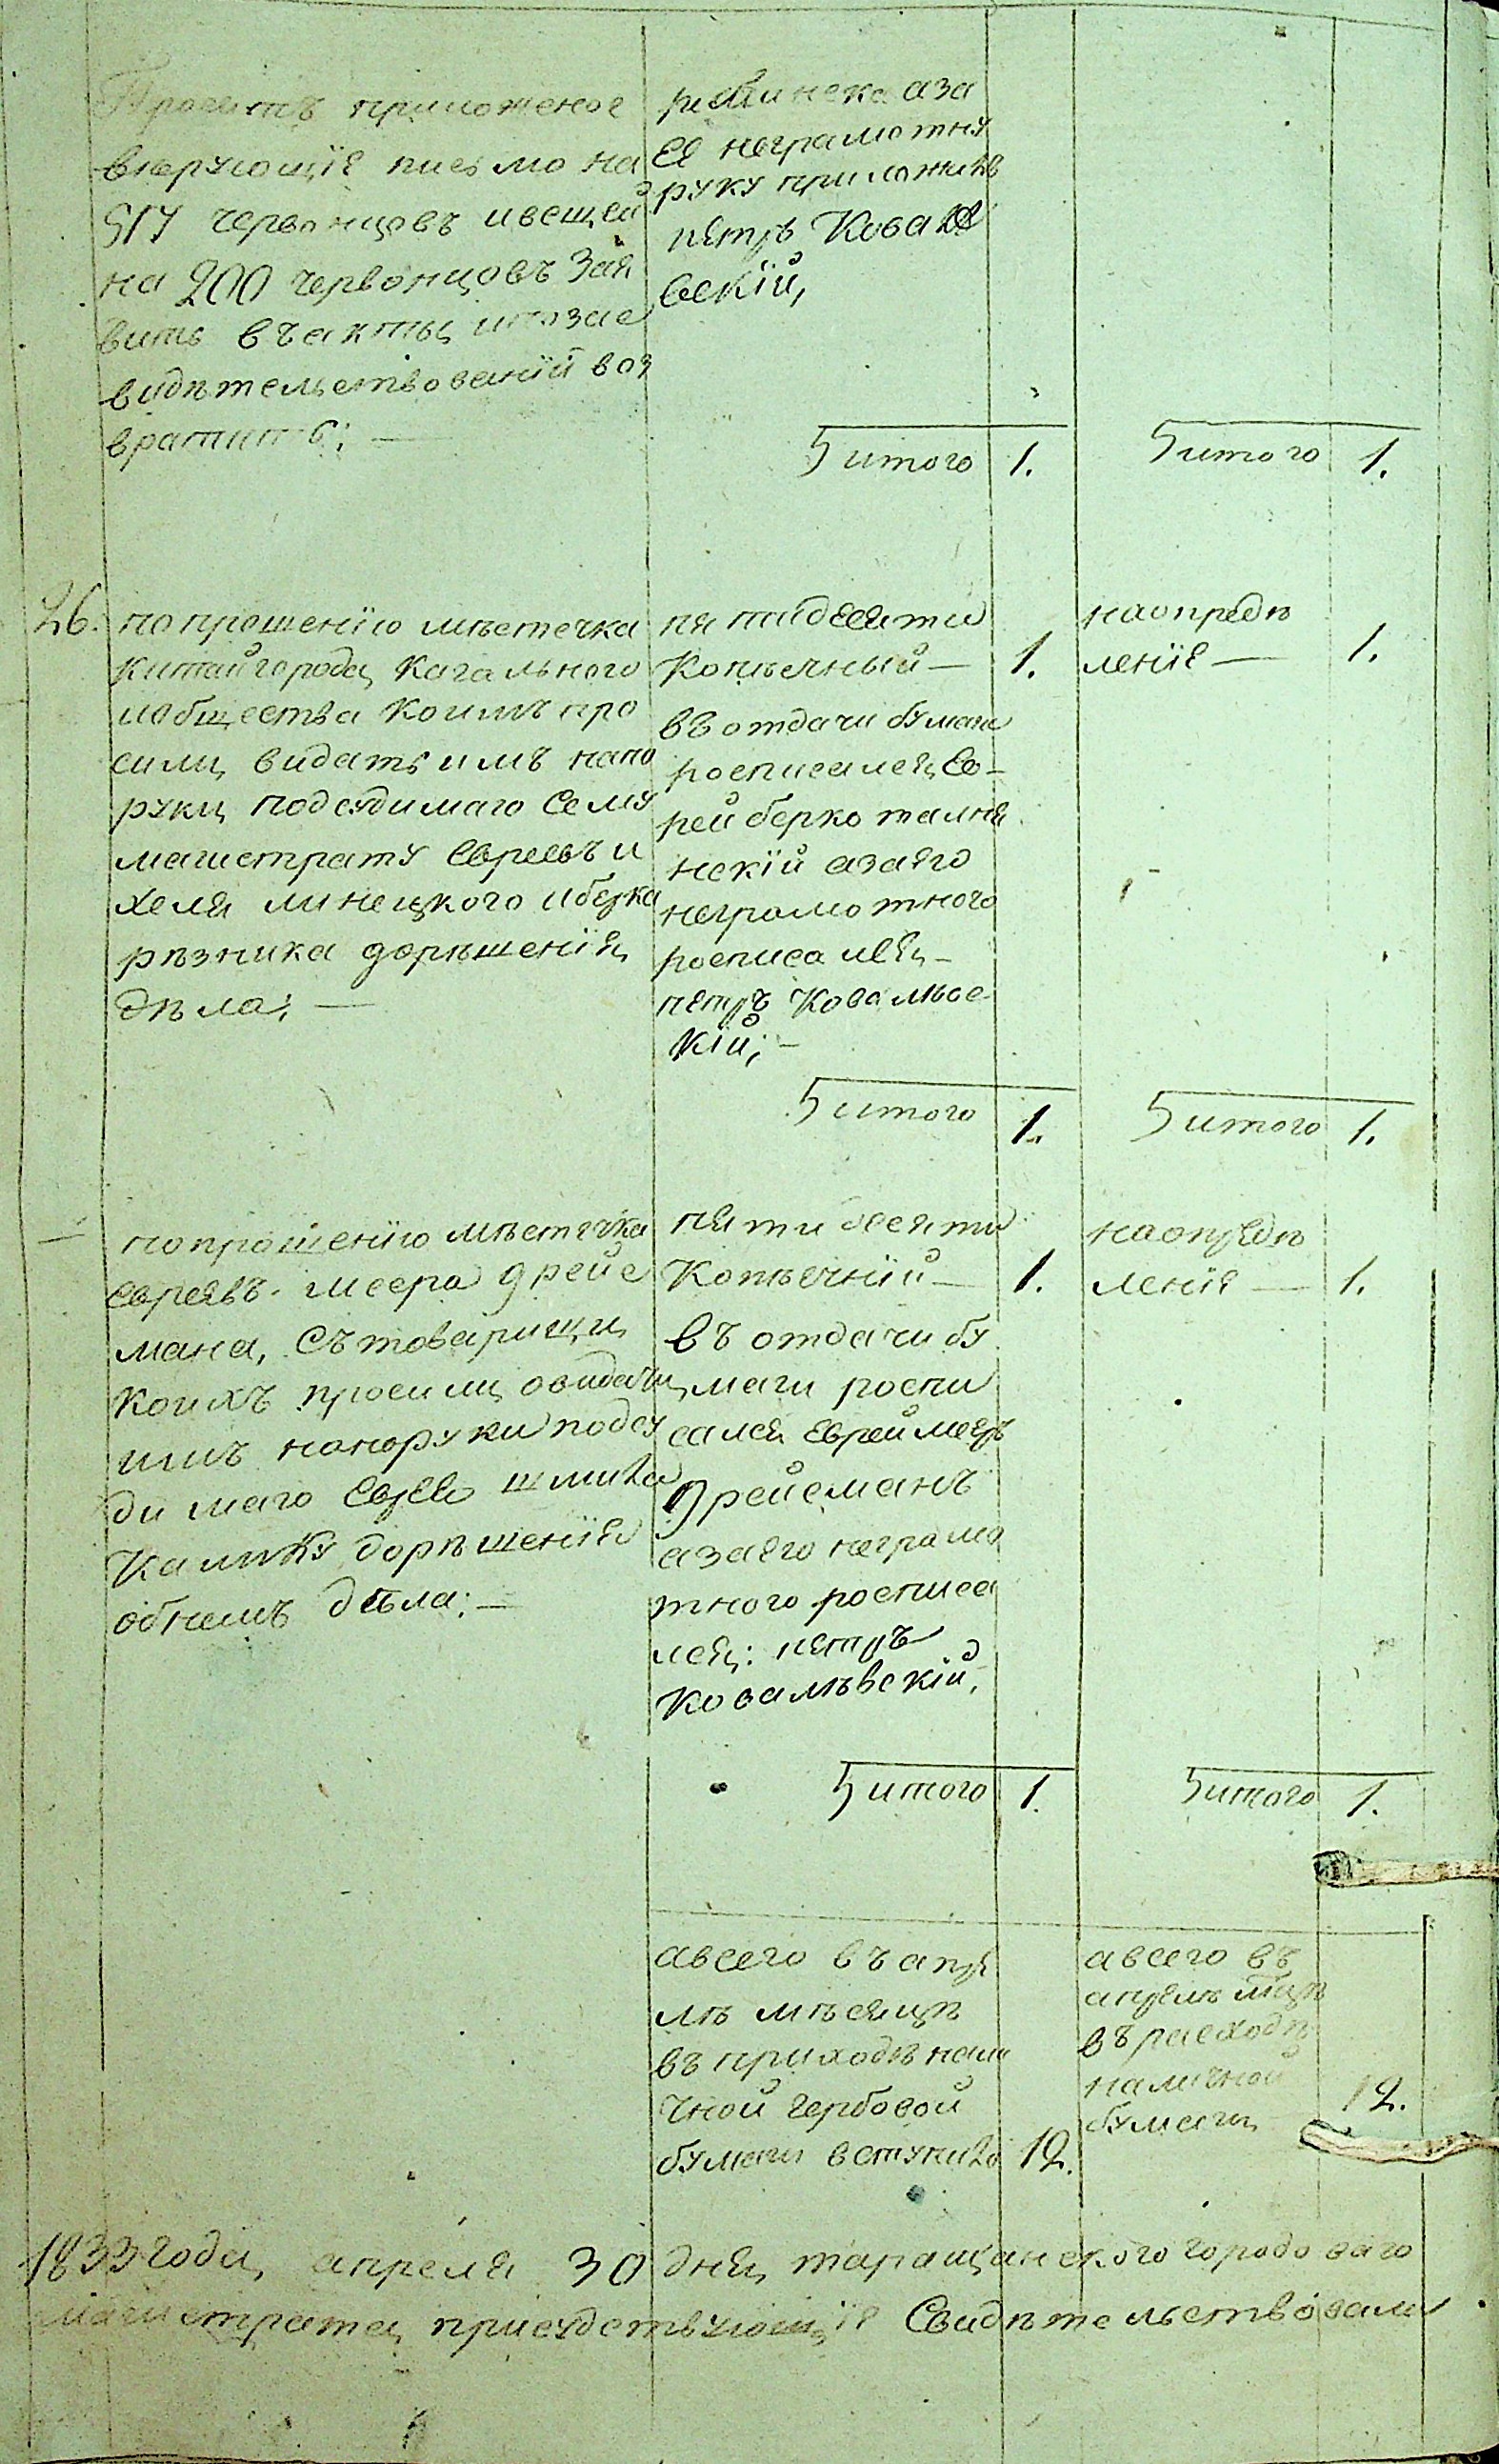 Проситъ приложеное
вѣрующіе письмо на
517 червонцовъ ивещей
на 200 червонцовъ Зая
вить въакты ипозас
видѣтельствованій воз
вратить; —
ринска аза
Ее неграмотну
руку приложилъ
петръ Ковалев
Скій,
итого 1.
итого 1.
26. попрошенію мѣстечка
китайгорода, Кагальнаго
иобщества коимъ про
сили, видать имъ напо
руки, подсудимаго Сему
магистрату Евреевъ и
хеля линецкого иберка
рѣзника дорѣшенія,
дѣла; —
пятидесяти
копѣечный — 1.
въотдачи бумаги
росписался, Ев-
рей берко талня
нскій азаего
неграмотного
росписался, -
петръ Ковальс
кій; -
наопредѣ
леніе — 1.
итого 1.
итого 1.
— попрошенію мѣстечка
евреевъ меера дрейс
мана, Сътоварищи,
коихъ просили, овидачи,
имъ напоруки подсу
димаго Еврея шмила
Калику дорѣшенія
обнемъ дѣла; —
пятидесяти
Копѣечній — 1.
въ отдачи бу
маги роспи
сался Еврей меер
Дрейсманъ
азаего неграмо
тного росписа
лся,: петръ
Ковальвскій,
наопредѣ
леніе — 1.
итого 1.
итого 1.
авсего въ апре
лѣ мѣсяцѣ
въ приходѣ нали
чной гербовой
бумаги вступило 12.
авсего въ
апрелѣ мцѣ
въ расходѣ
наличной
бумаги, 12.
1833 года, апреля 30 дня, таращанского городоваго
магистрата, присудствующіе Свидѣтельствовали